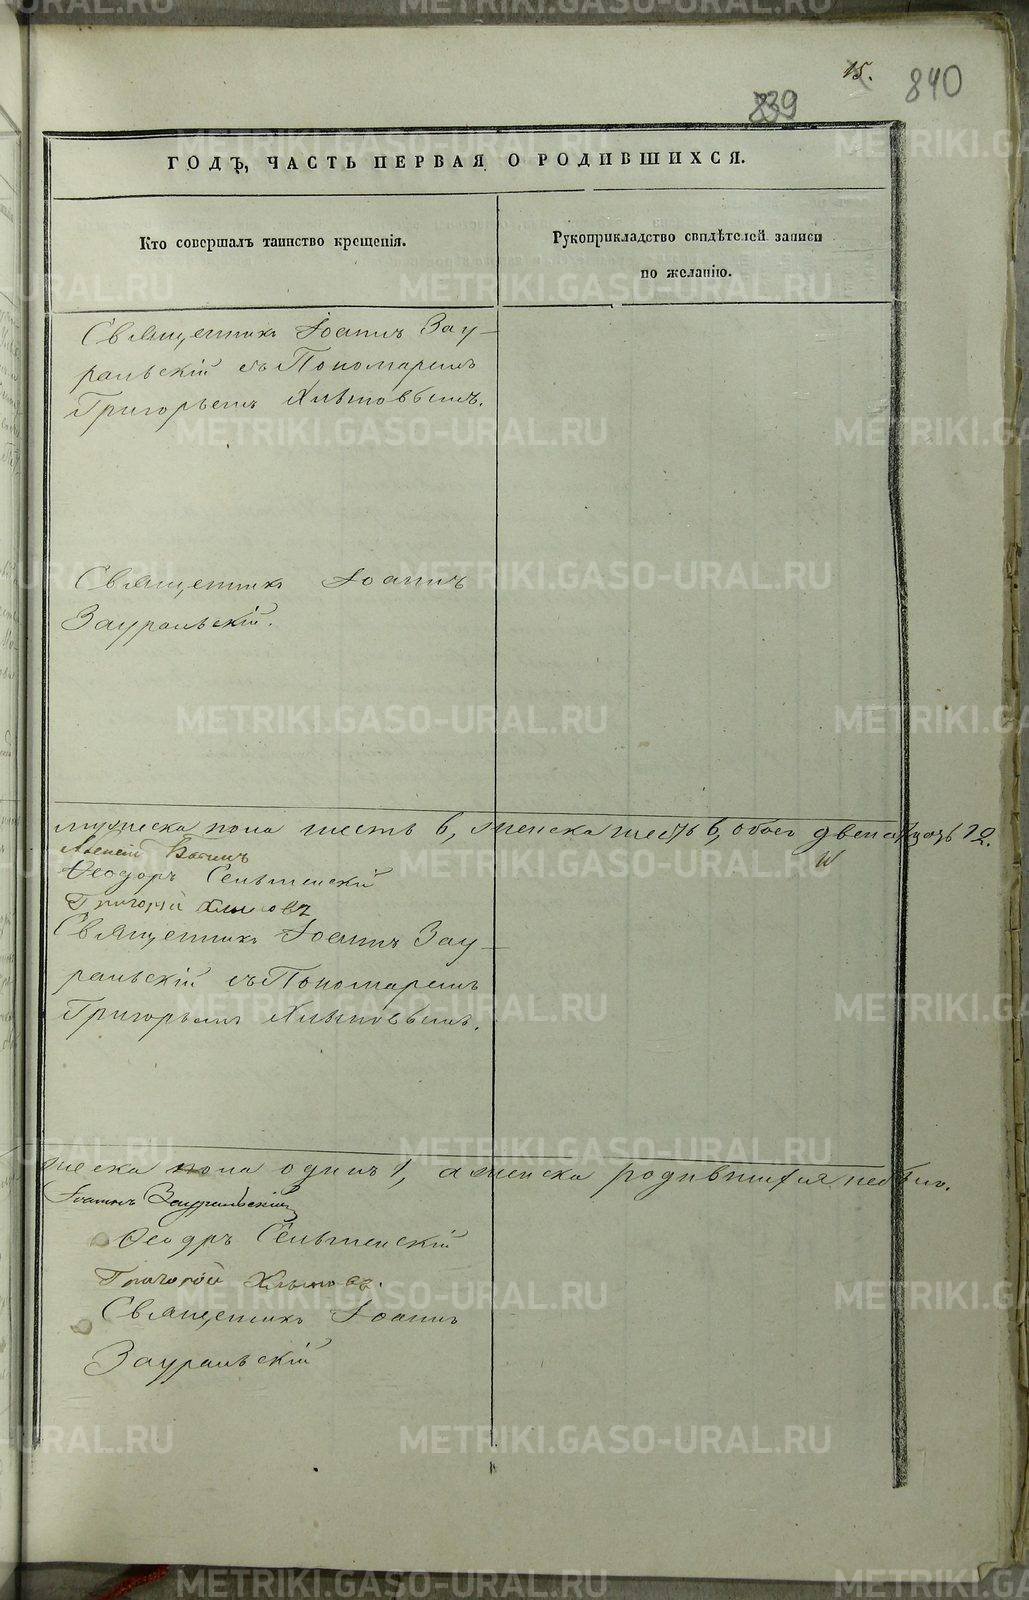 15.
840
839
ГОДЪ, ЧАСТЬ ПЕРВАЯ О РОДИВШИХСЯ.
Кто совершалъ таинство крещенія.
Рукоприкладство свидѣтелей записи
по желанію.
Священникъ Іоаннъ Зау-
ральскій съ Пономаремъ
Григорьемъ Хлыновымъ.
Священникъ Іоаннъ
Зауральскій.
мужеска пола шесть 6, женска шесть 6, обоего двенадцать 12.
Ѳеодоръ Сельменскій
Григорій Хлыновъ
Священникъ Іоаннъ Зау-
ральскій съ Пономаремъ
Григорьемъ Хлыновымъ.
жеска пола одинъ 1, а женска родившихся не было.
Іоаннъ Зауральскій
Ѳеодръ Сельменскій
Григорій Хлыновъ.
Священникъ Іоаннъ
Зауральскій
METRIKI.GASO-URAL.RU